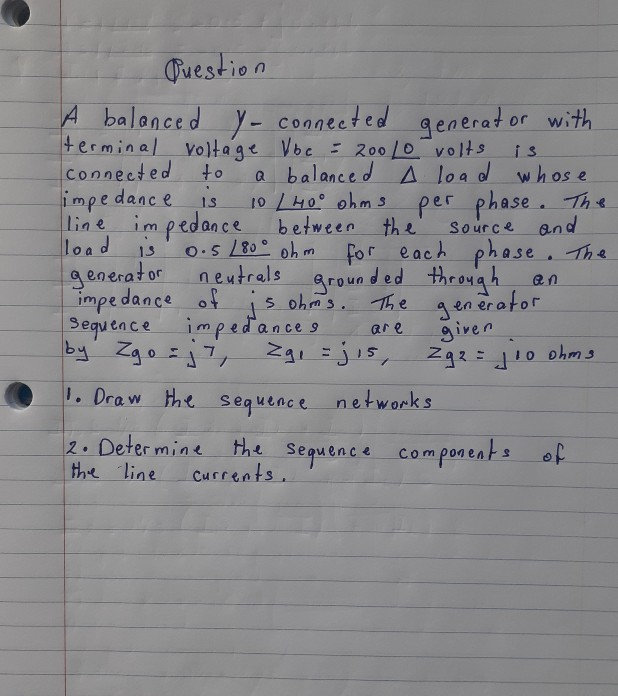 Question
A balanced Y- connected generator with
terminal voltage Vbc = 200∠0 volts is
connected to a balanced Δ load whose
impedance is 10∠40° ohms per phase. The
line impedance between the source and
load is 0.5∠80° ohm for each phase. The
generator neutrals grounded through an
impedance of j5 ohms. The generator
sequence impedances are given
by Zg0 = j7, Zg1 = j15, Zg2 = j10 ohms
1. Draw the sequence networks
2. Determine the sequence components of
the line currents.